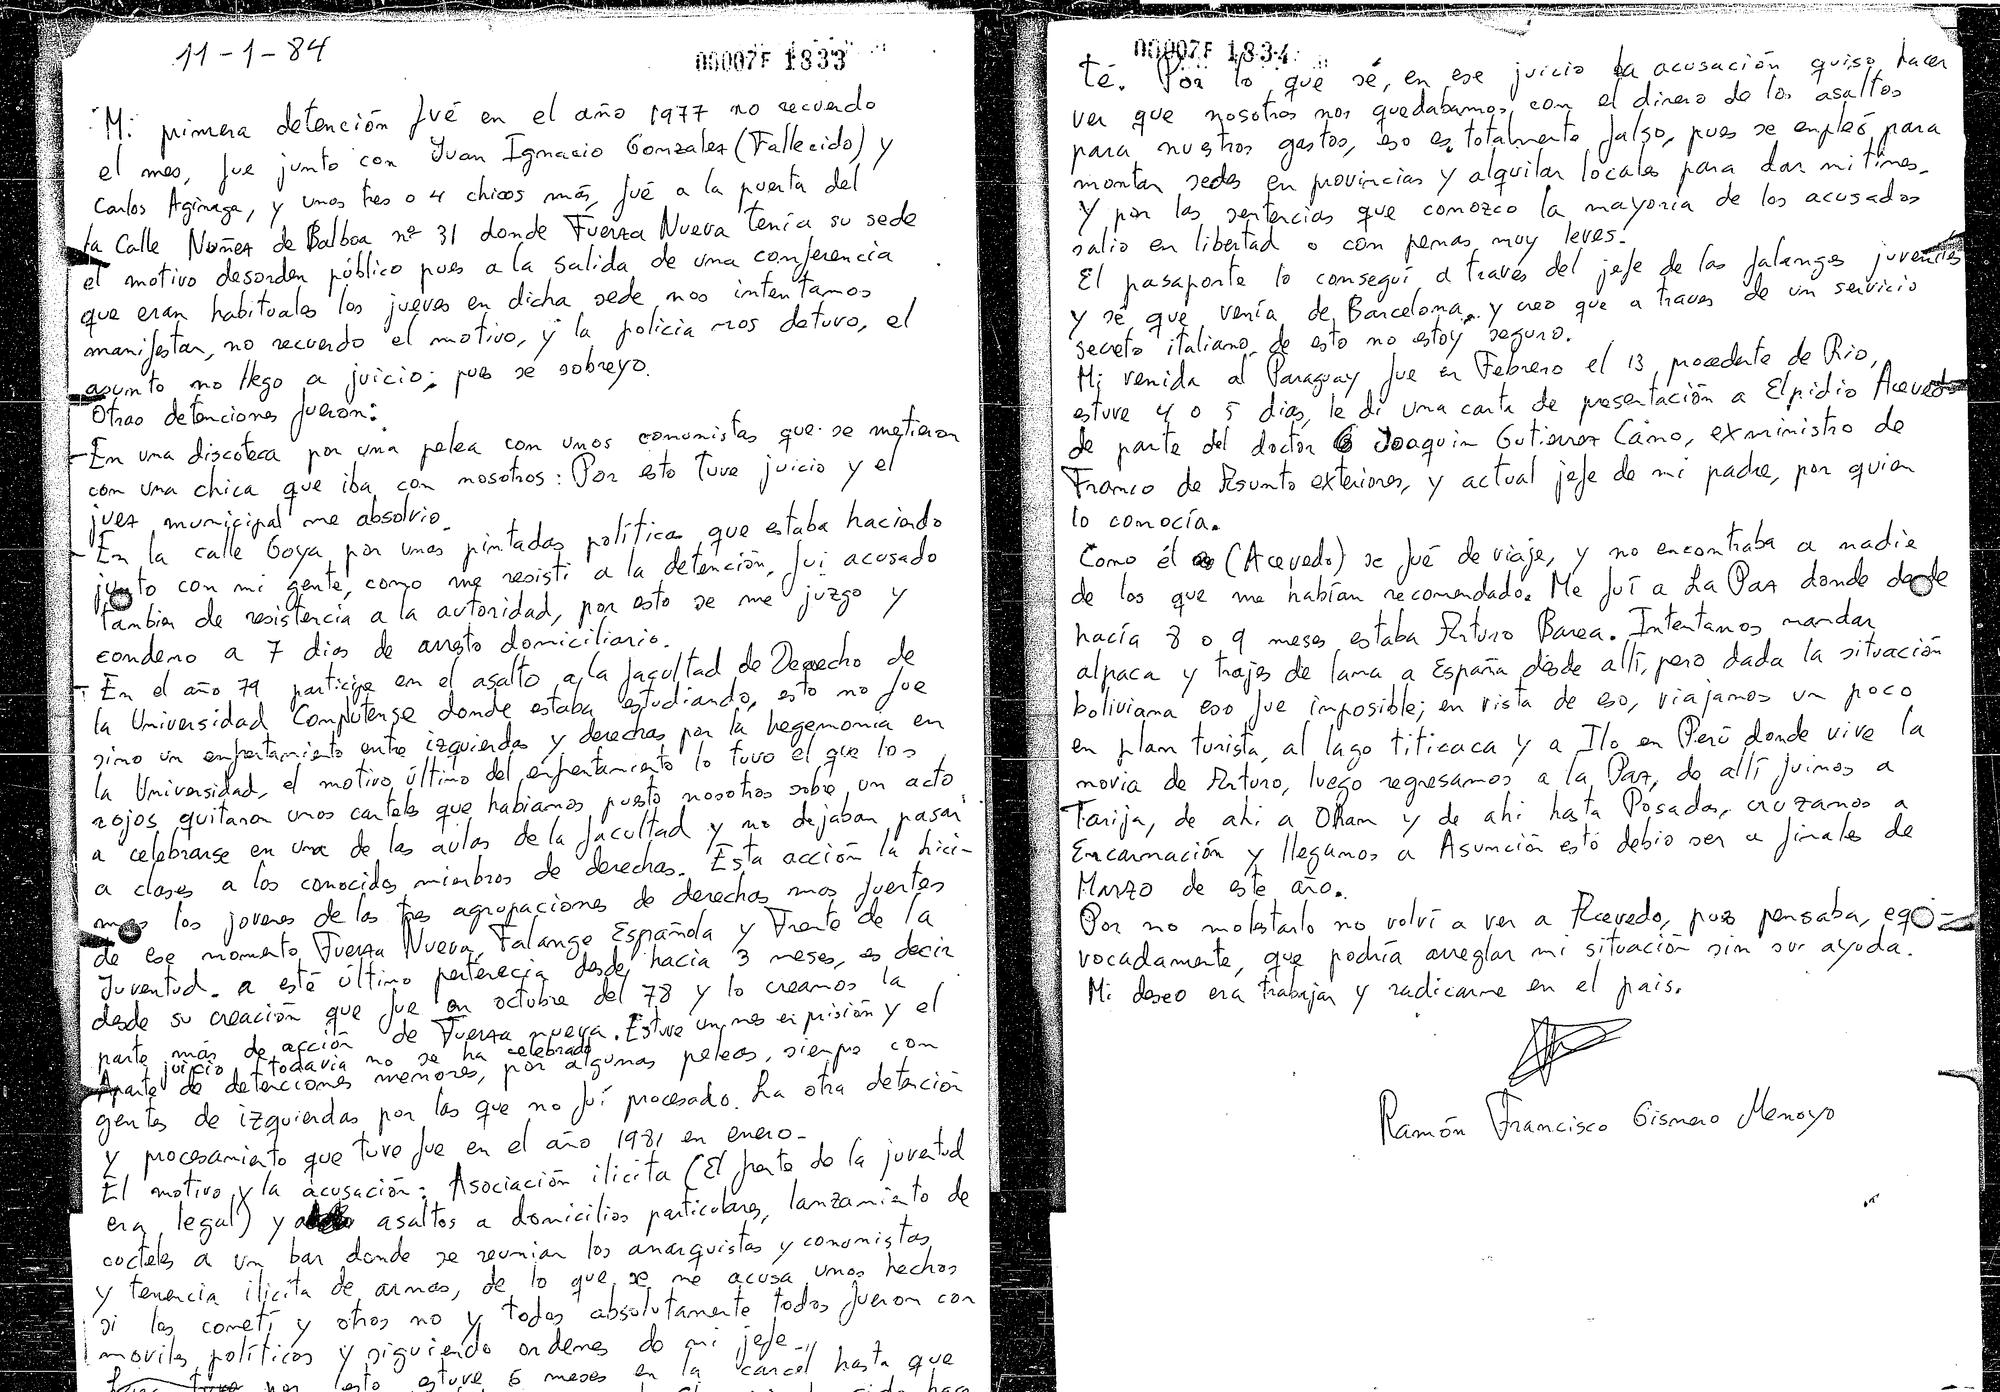 11-1-84
00007F 1833
Mi primera detención fué en el año 1977 no recuerdo
el mes, fue junto con Juan Ignacio Gonzalez (Fallecido) y
Carlos Aginaga, y unos tres o 4 chicos más, fué a la puerta del
la Calle Nuñez de Balboa nº 31 donde Fuerza Nueva tenía su sede
el motivo desorden público pues a la salida de una conferencia
que eran habituales los jueves en dicha sede nos intentamos
manifestar, no recuerdo el motivo, y la policia nos detuvo, el
asunto no llego a juicio; pues se sobreyo.
Otras detenciones fueron:
- En una discoteca por una pelea con unos comunistas que se metieron
con una chica que iba con nosotros: Por esto tuve juicio y el
juez municipal me absolvio.
- En la calle Goya por unas pintadas políticas que estaba haciendo
junto con mi gente, como me resisti a la detención, fui acusado
tambien de resistencia a la autoridad, por esto se me juzgo y
condeno a 7 dias de arresto domiciliario.
- En el año 79 participe en el asalto a la facultad de Derecho de
la Universidad Complutense donde estaba estudiando, esto no fue
sino un enfrentamiento entre izquierdas y derechas por la hegemonia en
la Universidad, el motivo último del enfrentamiento lo tuvo el que los
rojos quitaron unos carteles que habiamos puesto nosotros sobre un acto
a celebrarse en una de las aulas de la facultad y no dejaban pasar
a clases a los conocidos miembros de derechas. Esta acción la hici-
mos los jovenes de las tres agrupaciones de derechas mas fuertes
de ese momento Fuerza Nueva, Falange Española y Frente de la
Juventud. a esté último pertenecia desde hacia 3 meses, es decir
desde su creación que fue en octubre del 78 y lo creamos la
parte más de acción de Fuerza nueva. Estuve un mes en prisión y el
juicio todavia no se ha celebrado
Aparte de detenciones menores, por algunas peleas, siempre con
gentes de izquierdas por las que no fuí procesado. La otra detención
y procesamiento que tuve fue en el año 1981 en enero-
El motivo y la acusación: Asociación ilicita (El frente de la juventud
era legal) y asaltos a domicilios particulares, lanzamiento de
cocteles a un bar donde se reunian los anarquistas y comunistas,
y tenencia ilicita de armas, de lo que se me acusa unos hechos
si los cometí y otros no y todos absolutamente todos fueron con
moviles políticos y siguiendo ordenes de mi jefe.
por esto estuve 6 meses en la carcel hasta que
00007F 1834
té. Por lo que sé, en ese juicio la acusación quiso hacer
ver que nosotros nos quedabamos con el dinero de los asaltos
para nuestros gastos, eso es totalmente falso, pues se empleó para
montar sedes en provincias y alquilar locales para dar mitines.
Y por las sentencias que conozco la mayoria de los acusados
salio en libertad o con penas muy leves.
El pasaporte lo conseguí a traves del jefe de las falanges juveniles
y sé que venía de Barcelona, y creo que a traves de un servicio
secreto italiano, de esto no estoy seguro.
Mi venida al Paraguay fue en Febrero el 13 procedente de Rio,
estuve 4 o 5 dias, le di una carta de presentación a Elpidio Acevedo
de parte del doctor Joaquin Gutierrez Cano, exministro de
Franco de Asunto exteriores, y actual jefe de mi padre, por quien
lo conocía.
Como él (Acevedo) se fué de viaje, y no encontraba a nadie
de los que me habían recomendado. Me fuí a La Paz donde desde
hacía 8 o 9 meses estaba Arturo Barea. Intentamos mandar
alpaca y trajes de lama a España desde allí, pero dada la situación
boliviana eso fue imposible; en vista de eso, viajamos un poco
en plan turista, al lago titicaca y a Ilo en Perú donde vive la
novia de Arturo, luego regresamos a la Paz, de allí fuimos a
Tarija, de ahi a Oran y de ahi hasta Posadas, cruzamos a
Encarnación y llegamos a Asunción estó debio ser a finales de
Marzo de este año.
Por no molestarlo no volví a ver a Acevedo, pues pensaba, equi-
vocadamente, que podría arreglar mi situación sin su ayuda.
Mi deseo era trabajar y radicarme en el pais.
Ramón Francisco Gismero Menoyo